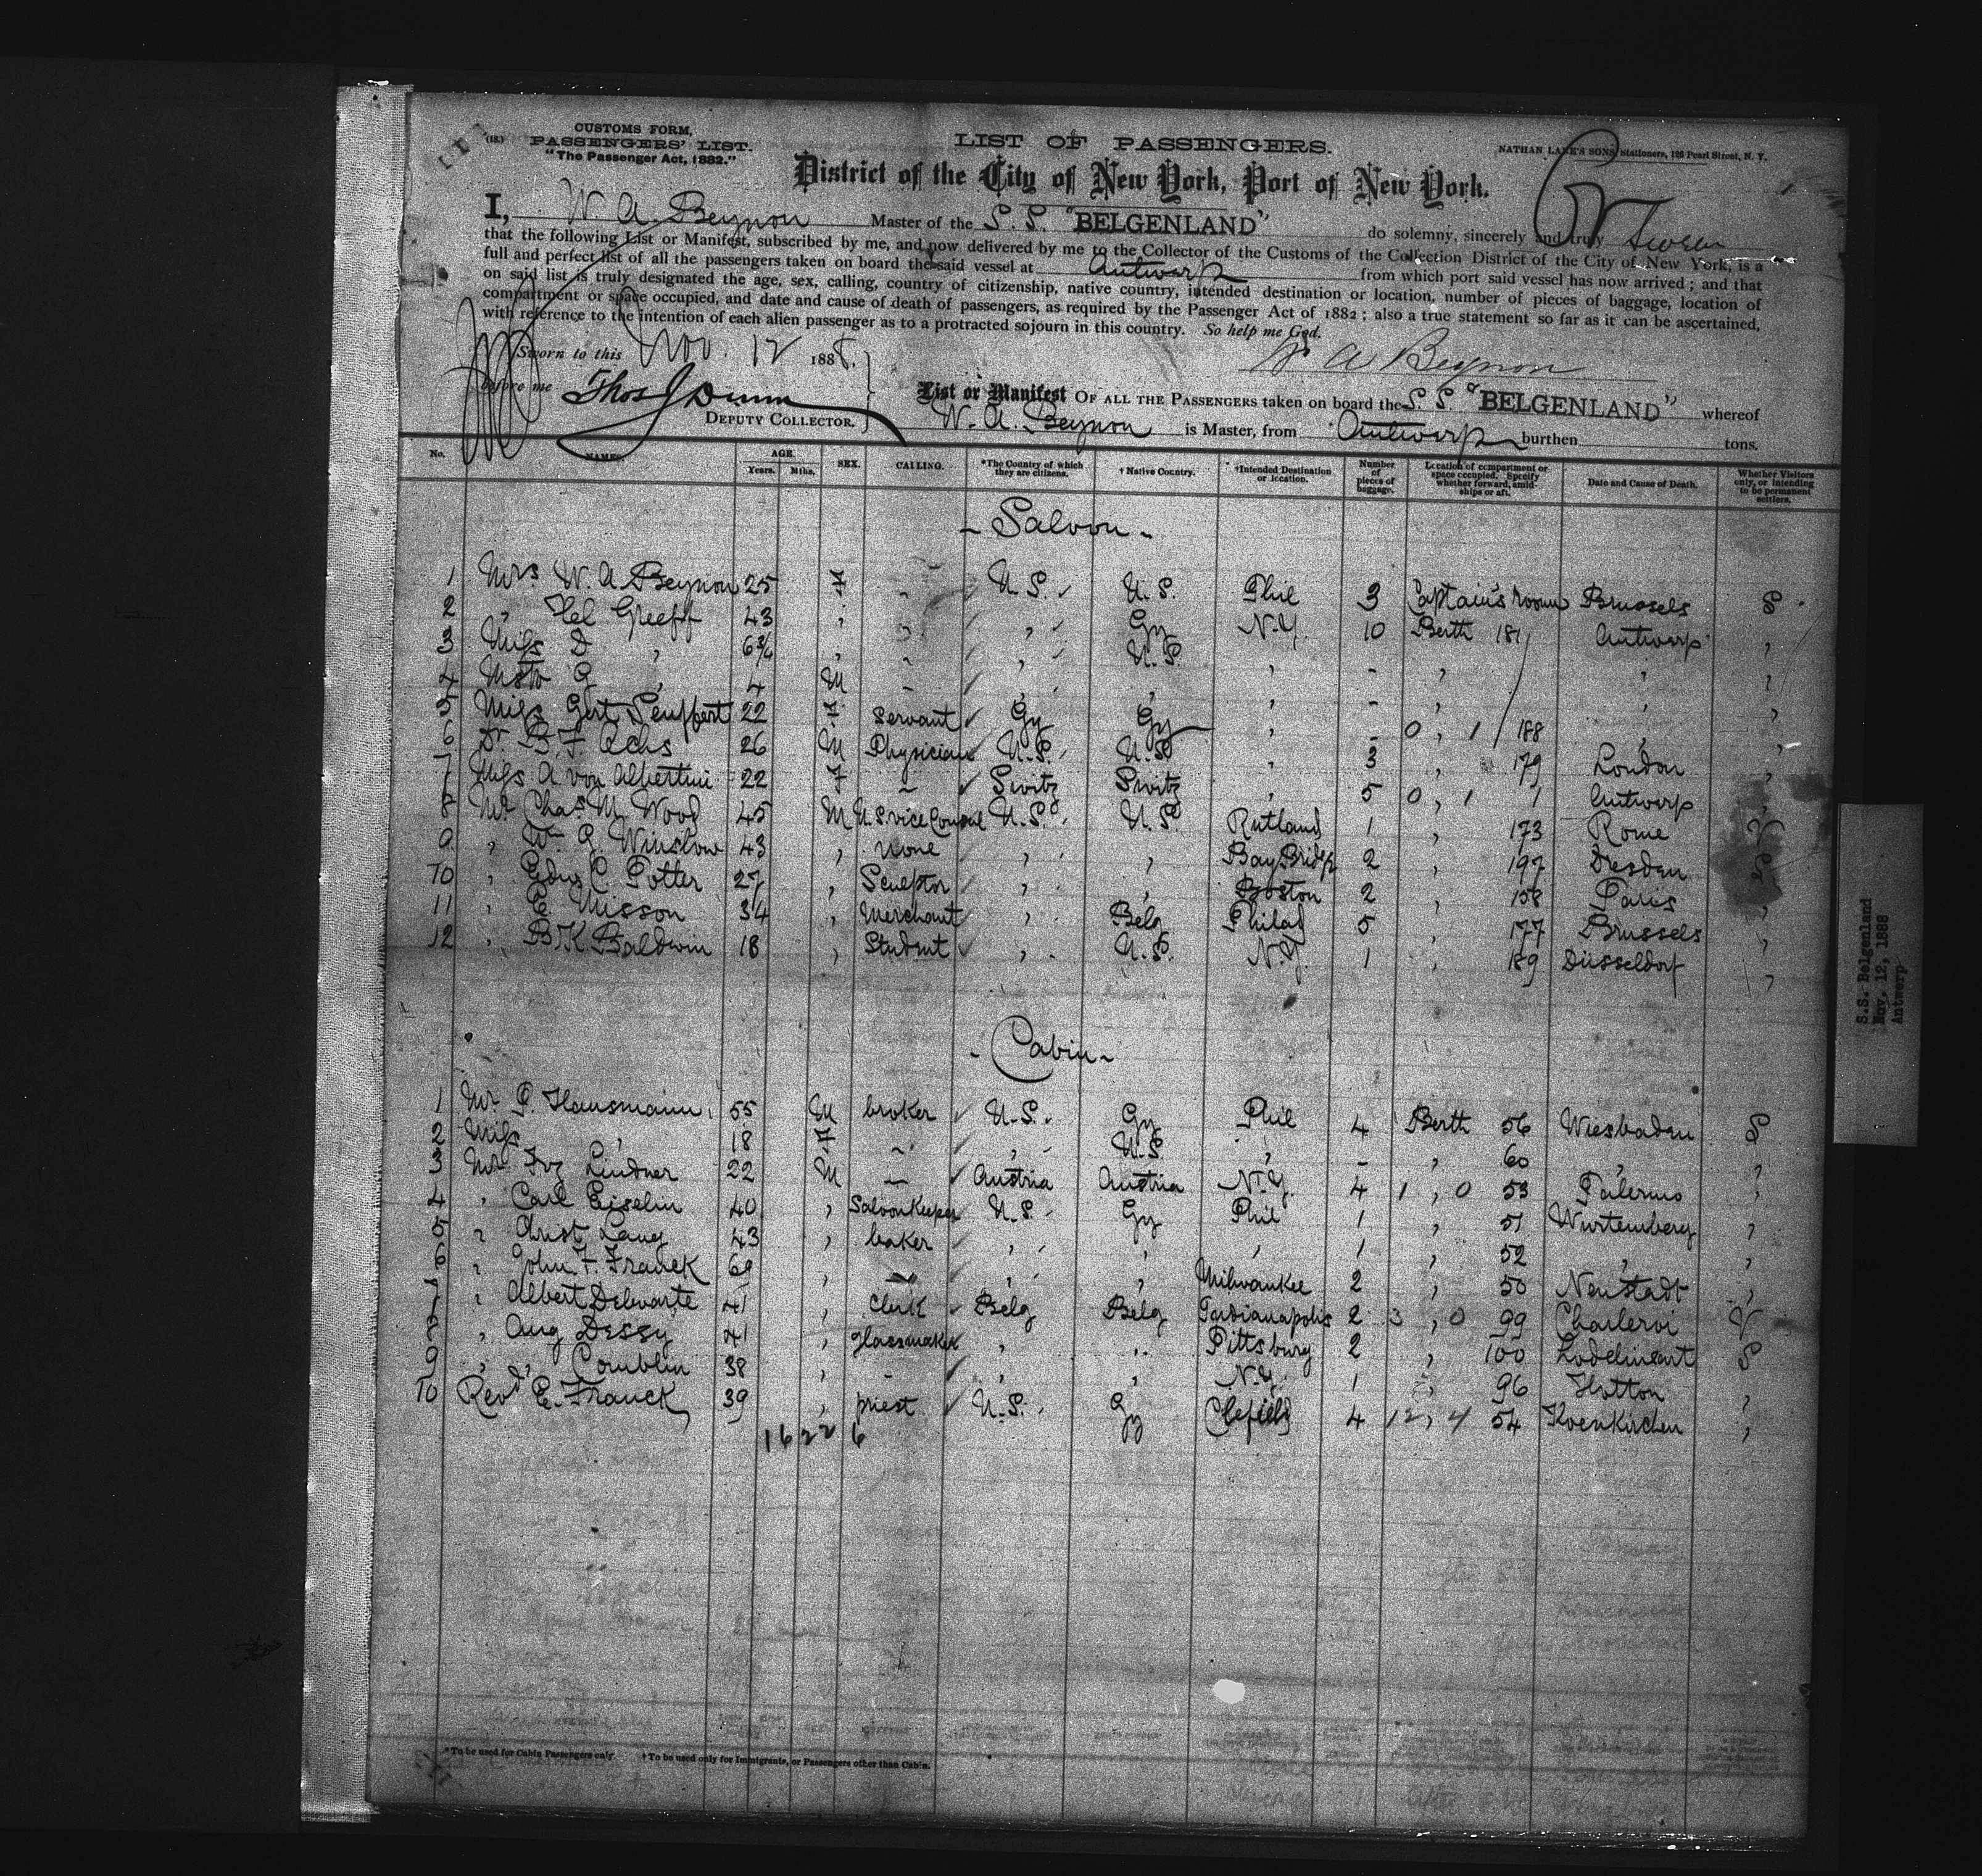 (18.) CUSTOMS FORM, PASSENGERS' LIST. "The Passenger Act, 1882."
LIST OF PASSENGERS.
NATHAN LANE'S SONS, Stationers, 126 Pearl Street, N. Y.
District of the City of New York, Port of New York.
I, W. A. Beynon Master of the S. S. "BELGENLAND" do solemny, sincerely and truly Swear
that the following List or Manifest, subscribed by me, and now delivered by me to the Collector of the Customs of the Collection District of the City of New York, is a
full and perfect list of all the passengers taken on board the said vessel at Antwerp from which port said vessel has now arrived; and that
on said list is truly designated the age, sex, calling, country of citizenship, native country, intended destination or location, number of pieces of baggage, location of
compartment or space occupied, and date and cause of death of passengers, as required by the Passenger Act of 1882; also a true statement so far as it can be ascertained,
with reference to the intention of each alien passenger as to a protracted sojourn in this country. So help me God.
Sworn to this Nov. 12 1888.
W A Beynon
before me Thos J Dunn
DEPUTY COLLECTOR.
List or Manifest OF ALL THE PASSENGERS taken on board the S. S. "BELGENLAND" whereof
W. A. Beynon is Master, from Antwerp burthen tons.
No. NAMES. AGE. Years. Mths. SEX. CALLING. *The Country of which they are citizens. † Native Country. †Intended Destination or location. Number of pieces of baggage. Location of compartment or space occupied. Specify whether forward, amidships or aft. Date and Cause of Death. Whether Visitors only, or intending to be permanent settlers.
- Saloon -
1 Mrs W. A. Beynon 25 F - U.S. U.S. Phil 3 Captain's room Brussels S
2 " Hel Greeff 43 " - " Gy N.Y. 10 Berth 181 Antwerp "
3 Miss D " 6 " - " U.S. " - " " "
4 Mstr " 4 M - " " " - " " "
5 Miss Gert Seuffert 22 F Servant Gy Gy " - 0 , 1 188 " "
6 Dr. B. F. Ochs 26 M Physician U.S. U.S. " 3 " 179 London "
7 Miss A von Albertini 22 F - Switz Switz " 5 0 , 1 1 Antwerp "
8 Mr Chas M. Wood 45 M U.S. vice Consul U.S. U.S. Rutland 1 " 173 Rome
9 " Wm Winslow 43 " none " " Bay Bridge 2 " 197 Dresden
10 " Edw C. Potter 27 " Sculptor " " Boston 2 " 158 Paris "
11 " E. Misson 34 " Merchant " Belg Philad 5 " 177 Brussels "
12 " B. K. Baldwin 18 " Student " U.S. N.Y. 1 " 189 Düsseldorf "
- Cabin -
1 Mr P. Hausmann 55 M broker U.S. Gy Phil 4 Berth 56 Wiesbaden S
2 Miss " 18 F - " U.S. " - " 60 " "
3 Mr Lindner 22 M - Austria Austria N.Y. 4 1 , 0 53 Palermo "
4 " Carl Eiselin 40 " Saloonkeeper U.S. Gy Phil 1 " 51 Wurtemberg "
5 " Christ Lang 43 " baker " " " 1 " 52 " "
6 " John F. Franck 69 " - " " Milwaukee 2 " 50 Neustadt "
7 " Albert Delwarte 41 " Clerk Belg Belg Indianapolis 2 3 , 0 99 Charleroi V
8 " Aug Dessy 41 " glassmaker " " Pittsburg 2 " 100 Lodelinsart S
9 " " Comblin 38 " - " " N.Y. 1 " 96 Hotton "
10 Revd E. Franck 39 " priest U.S. Gy 4 12 , 4 54 "
16 22 6
*To be used for Cabin Passengers only. †To be used only for Immigrants, or Passengers other than Cabin.
S.S. Belgenland
Nov. 12, 1888
Antwerp